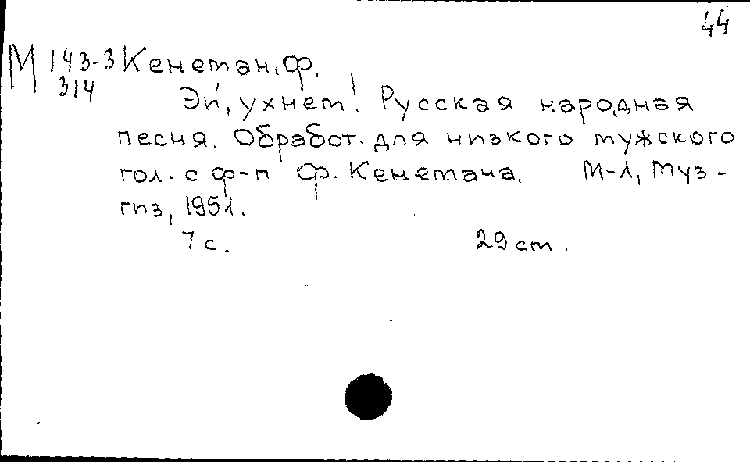 44
М 143-3 Кенеман, Ф.
314
Эй, ухнем! Русская народная
песня. Обработ. для низкого мужского
гол. с ф-п Ф. Кенемана. М-Л, Муз-
гиз, 1951.
7 с. 29 см.